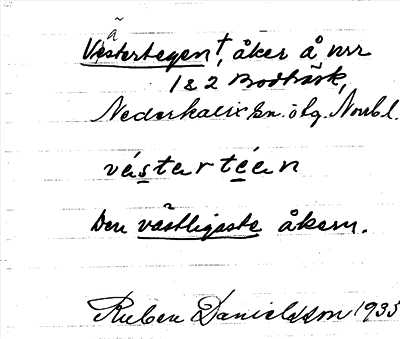 Västertegen†, åker å nrr
1 & 2 Brodträsk,
Nederkalix sn. ö lg. Norrb l.
västertéan
Den västligaste åkern.
Ruben Danielsson 1935